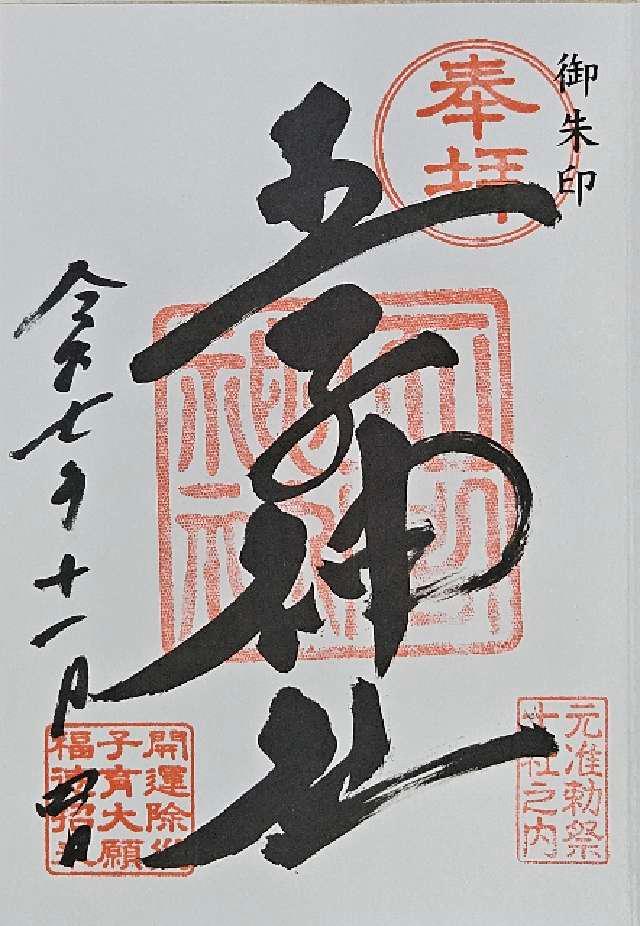 御朱印
奉拝
王子神社
令和七年十一月四日
元准勅祭
十社之内
開運除災
子育大願
福徳招来